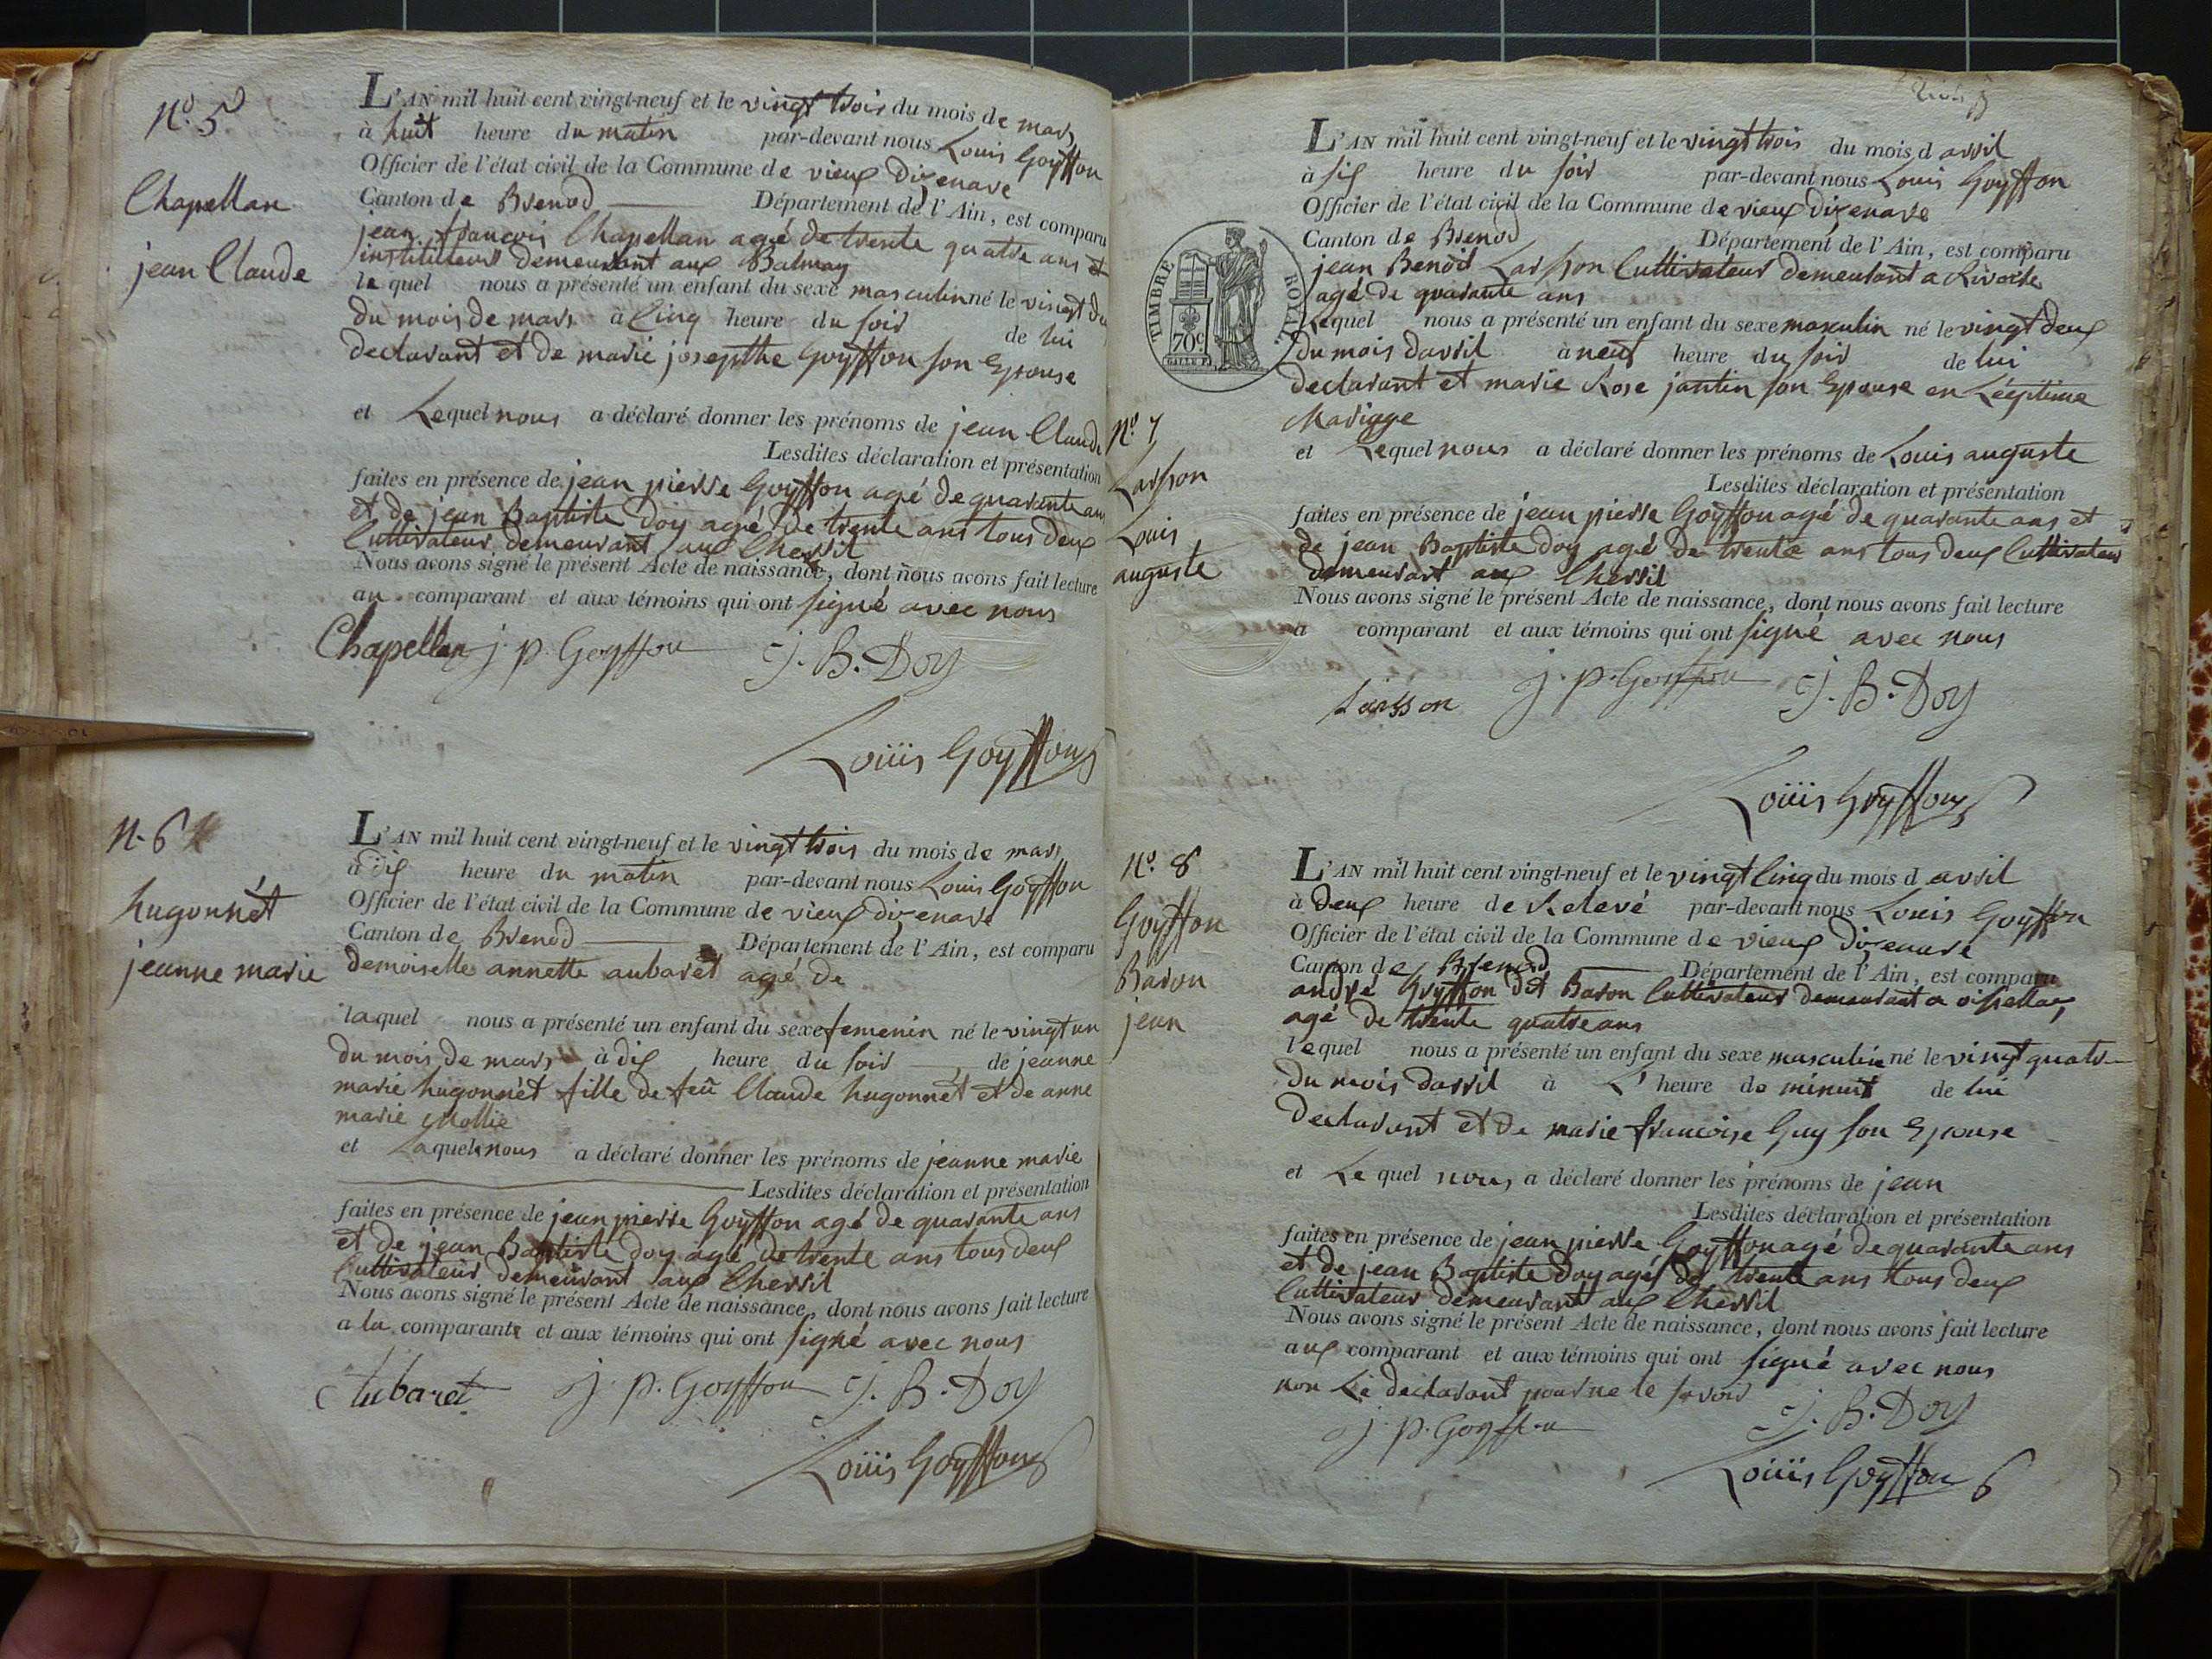 N.o 5
Chapellan
jean Claude
L'AN mil huit cent vingt-neuf et le vingt trois du mois de mars
à huit heure du matin par-devant nous Louis Goyffon
Officier de l'état civil de la Commune de vieux dizenave
Canton de Brenod Département de l'Ain, est comparu
jean françois Chapellan agé de trente quatre ans et
instituteur demeurant aux Balmay
le quel nous a présenté un enfant du sexe masculin né le vingt du
du mois de mars à Cinq heure du soir de lui
declarant et de marie josepthe Goyffon son Epouse
et Lequel nous a déclaré donner les prénoms de jean Claude
Lesdites déclaration et présentation
faites en présence de jean pierre Goyffon agé de quarante ans
et de jean Baptiste doy agé de trente ans tous deux
Cultivateur demeurant aux Chevril
Nous avons signé le présent Acte de naissance, dont nous avons fait lecture
au comparant et aux témoins qui ont signé avec nous
Chapellan j. p. Goyffon J. B. Doy
Louis Goyffon
N. 6
hugonnét
jeanne marie
L'AN mil huit cent vingt-neuf et le vingt trois du mois de mars
à dix heure du matin par-devant nous Louis Goyffon
Officier de l'état civil de la Commune de vieux dizenave
Canton de Brenod Département de l'Ain, est comparu
demoiselle annette aubarét agé de
laquel nous a présenté un enfant du sexe femenin né le vingt un
du mois de mars à dix heure du soir de jeanne
marie hugonnét fille de feu Claude hugonnét et de anne
marie Mollie
et Laquel nous a déclaré donner les prénoms de jeanne marie
Lesdites déclaration et présentation
faites en présence de jean pierre Goyffon agé de quarante ans
et de jean Baptiste doy agé de trente ans tous deux
Cultivateur demeurant aux Chevril
Nous avons signé le présent Acte de naissance, dont nous avons fait lecture
a la comparante et aux témoins qui ont signé avec nous
Aubaret J. P. Goyffon J. B. Doy
Louis Goyffon
L'AN mil huit cent vingt-neuf et le vingt trois du mois d avril
à six heure du soir par-devant nous Louis Goyffon
Officier de l'état civil de la Commune de vieux dizenave
Canton de Brenod Département de l'Ain, est comparu
jean Benoit Larsson Cultivateur demeurant a
agé de quarante ans
Lequel nous a présenté un enfant du sexe masculin né le vingt deux
du mois davril à neuf heure du soir de lui
declarant et marie Rose jantin son Epouse en Légitime
Mariage
et Lequel nous a déclaré donner les prénoms de Louis auguste
Lesdites déclaration et présentation
faites en présence de jean pierre Goyffon agé de quarante ans et
de jean Baptiste doy agé de trente ans tous deux Cultivateur
demeurant aux Chevril
Nous avons signé le présent Acte de naissance, dont nous avons fait lecture
a comparant et aux témoins qui ont signé avec nous
Larsson J. P. Goyffon J. B. Doy
Louis Goyffon
TIMBRE ROYAL
70c
N.o 7
Larsson
Louis
auguste
N.o 8
Goyffon
Baron
jean
L'AN mil huit cent vingt-neuf et le vingt Cinq du mois d avril
à deux heure de Relevé par-devant nous Louis Goyffon
Officier de l'état civil de la Commune de vieux dizenave
Canton de Brenod Département de l'Ain, est comparu
andré Goyffon dit Baron Cultivateur demeurant a
agé de trente quatre ans
lequel nous a présenté un enfant du sexe masculin né le vingt quatre
du mois davril à L' heure de minuit de lui
declarant et de marie françoise Guy son Epouse
et Le quel nous a déclaré donner les prénoms de jean
Lesdites déclaration et présentation
faites en présence de jean pierre Goyffon agé de quarante ans
et de jean Baptiste doy agés de trente ans tous deux
Cultivateur demeurant aux Chevril
Nous avons signé le présent Acte de naissance, dont nous avons fait lecture
aux comparant et aux témoins qui ont signé avec nous
non Le declarant pour ne le savoir
J. P. Goyffon J. B. Doy
Louis Goyffon